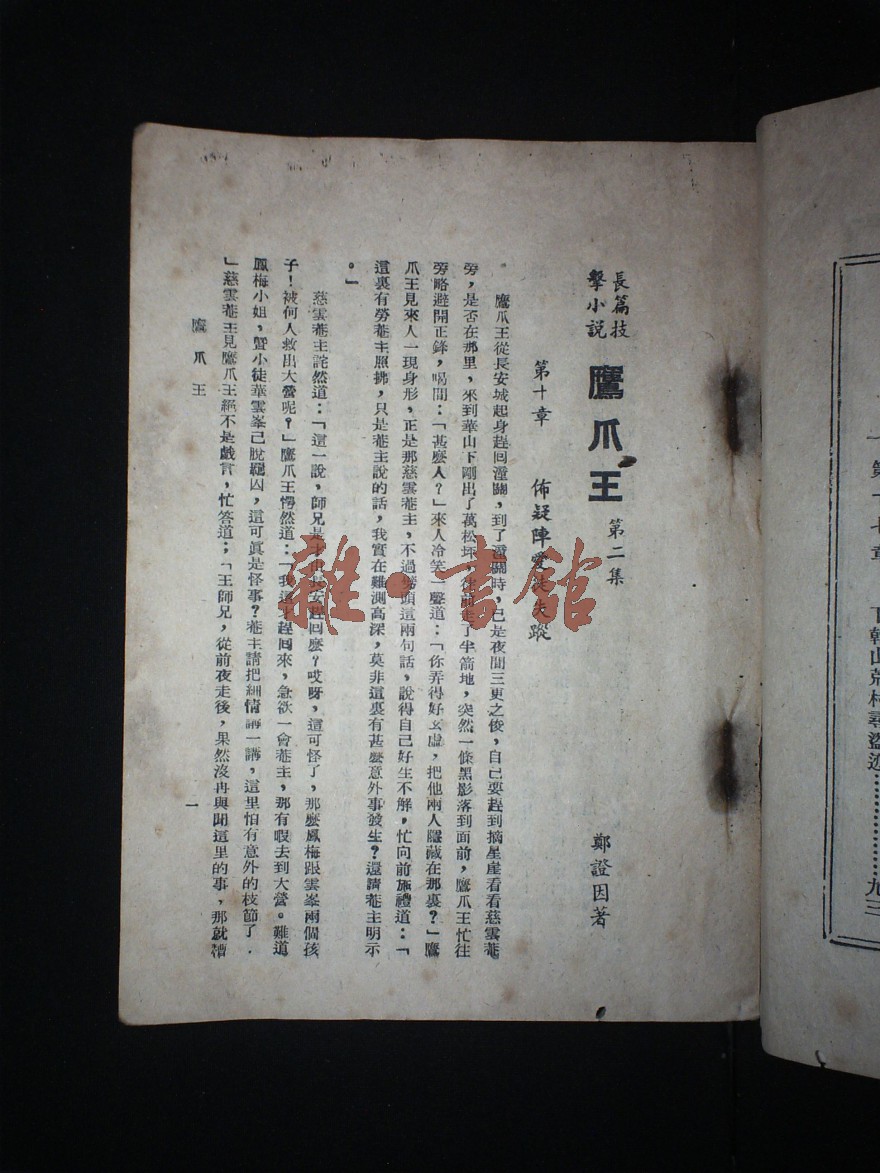 長篇技
擊小説
鷹爪王
第二集
鄭證因著
第十章 佈疑陣愛徒失蹤
鷹爪王從長安城起身趕囘潼關，到了潼關時，已是夜間三更之後，自己要趕到摘星崖看看慈雲菴
旁，是否在那里，來到華山下剛出了萬松坪，往前走了半箭地，突然一條黑影落到面前，鷹爪王忙往
旁略避開正鋒，喝問：「甚麼人？」來人冷笑一聲道：「你弄得好玄虛，把他兩人隱藏在那裏？」鷹
爪王見來人一現身形，正是那慈雲菴主，不過劈頭這兩句話，說得自己好生不解，忙向前施禮道：「
這裏有勞菴主照拂，只是菴主說的話，我實在難測高深，莫非這裏有甚麼意外事發生？還請菴主明示
。」
慈雲菴主詫然道：「這一說，師兄是才由長安趕囘麼？哎呀，這可怪了，那麼鳳梅跟雲峯兩個孩
子！被何人救出大營呢？」鷹爪王愕然道：「我這才趕囘來，急欲一會菴主，那有暇去到大營。難道
鳳梅小姐，曁小徒華雲峯已脫羈囚，這可眞是怪事？菴主請把細情講一講，這里怕有意外的枝節了．
」慈雲菴主見鷹爪王絕不是戲言，忙答道；「王師兄，從前夜走後，果然沒再與聞這里的事，那就糟
鷹爪王
一
雜·書館
第十七章
下韓山荒村尋盜迹………………九三